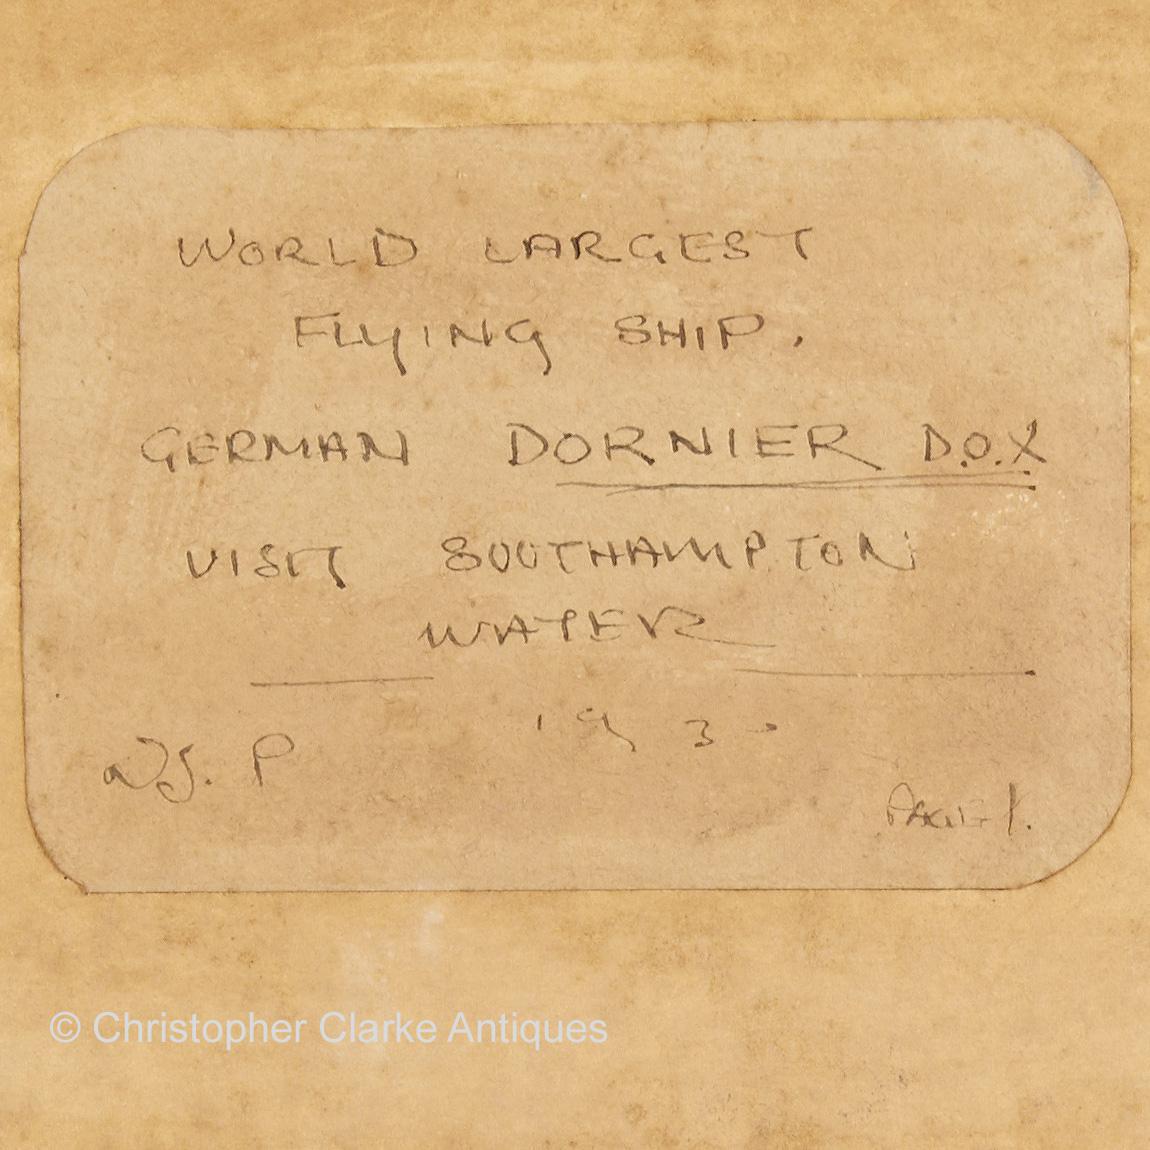 WORLD LARGEST
FLYING SHIP.
GERMAN DORNIER D.O.X
VISIT SOUTHAMPTON
WATER
1930
P
PAGE 1.
© Christopher Clarke Antiques